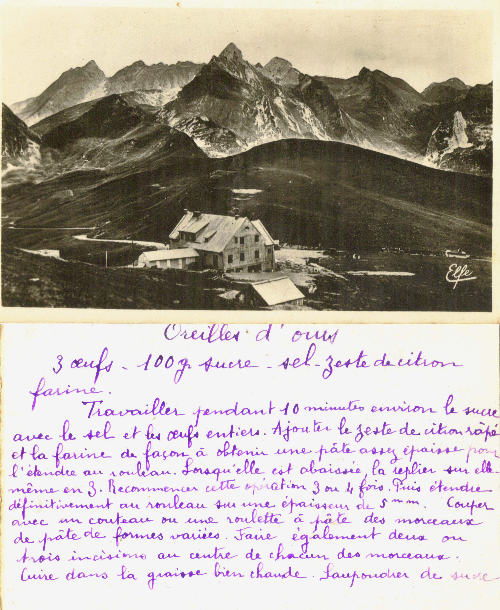 Elfe
Oreilles d'ours
3 œufs - 100g sucre - sel - zeste de citron
farine.
Travailler pendant 10 minutes environ le sucre
avec le sel et les œufs entiers. Ajouter le zeste de citron râpé
et la farine de façon à obtenir une pâte assez épaisse pour
l'étendre au rouleau. Lorsqu'elle est abaissée la replier sur elle-
même en 3. Recommencer cette opération 3 ou 4 fois. Puis étendre
définitivement au rouleau sur une épaisseur de 5 mm. Couper
avec un couteau ou une roulette à pâte des morceaux
de pâte de formes variées. Faire également deux ou
trois incisions au centre de chacun des morceaux.
Cuire dans la graisse bien chaude. Saupoudrer de sucre